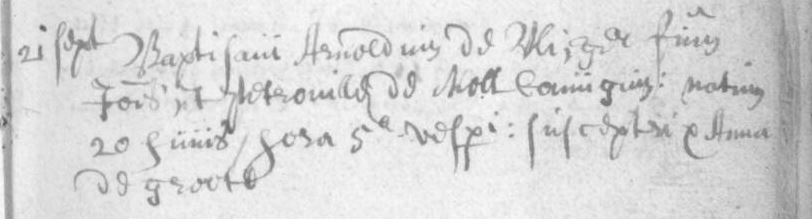 21 sept Baptisavi Arnoldum de Vlieger filiū
Jōis et Petronillæ de Moll Coniugum: natum
20 huius hora 5ª vesp: susceptrix Anna
de groote